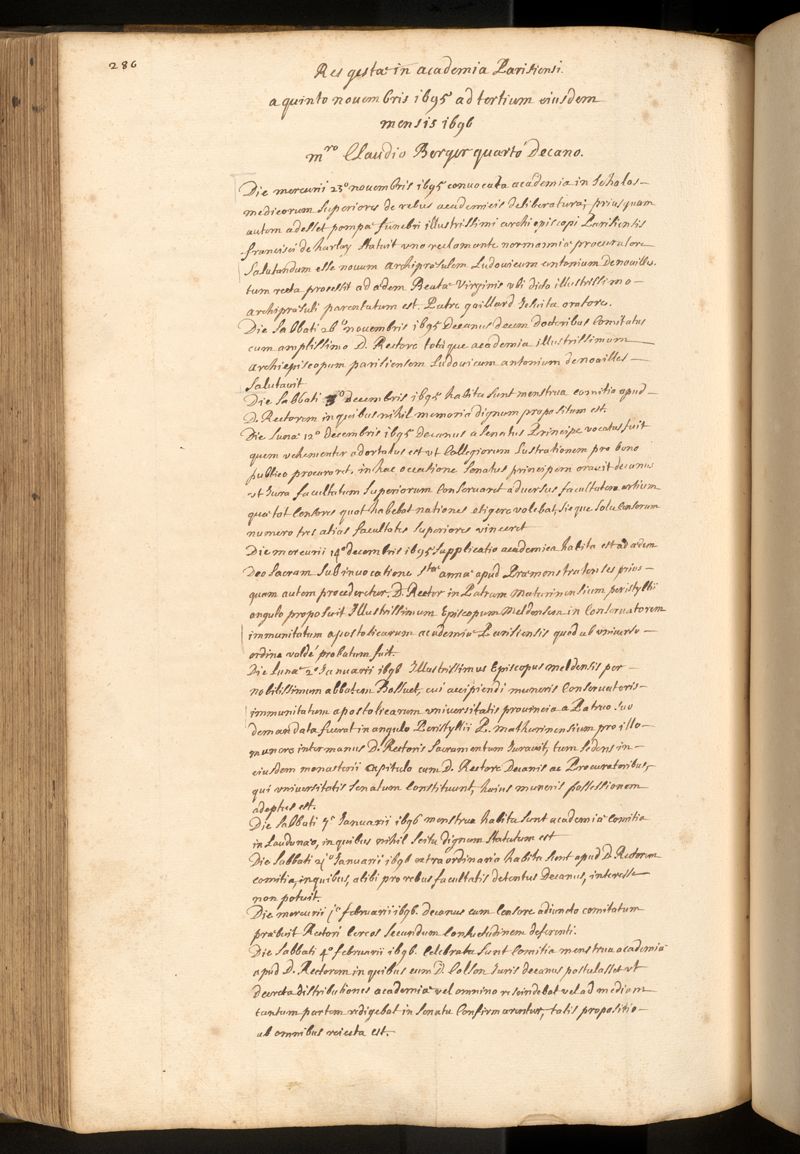 286
Res gestæ in academia Parisiensi.
a quinto novembris 1695 ad tertium eiusdem
mensis 1696
mro Claudio Berger quarto Decano.
Die mercurii 23o novembris 1695 convocata academia in scholas
medicorum superiores de rebus academicis deliberatura; priusquam
autem adesset pompæ funebri illustrissimi archiepiscopi Parisiensis
francisci de harlay statuit uno reclamante normaniæ procuratore
salutandum esse novum archipræsulem Ludovicum antonium Denoailles.
tum recta processit ad ædem Beatæ Virginis ubi dicto illustrissimo
archipræsuli parentatum est. Patre gaillard Jesuita oratore.
Die sabbati 26o novembris 1695 Decanus decem doctoribus comitatus
cum amplissimo D. Rectore totique academia illustrissimum
archiepiscopum parisiensem Ludovicum antonium denoailles
salutavit
Die sabbati 3o decembris 1695 habita sunt menstrua comitia apud
D. Rectorem in quibus nihil memoria dignum propositum est.
Die lunæ 12o decembris 1695 decanus a senatus Principe vocatus fuit
quem vehementer adortatus est ut Collegiorum lustrationem pro bono
publico procuraret. in hac occasione senatus principem oravit decanus
ut Jura facultatum superiorum conservaret adversus facultatem artium
quæ tot censores quot habebat nationes eligere volebat, sic que sola censorum
numero tres alias facultates superiores vinceret
Die mercurii 14o decembris 1695 supplicatio academica habita est ad ædem
Deo sacram sub invocatione stæ annæ apud Præmonstratenses prius
quam autem procederetur. D. Rector in Patrum Maturinensium peristylii
angulo proposuit Illustrissimum Episcopum Meldensem in Conservatorem
immunitatum apostolicarum academiæ Parisiensis quod ab universo
ordine valdé probatum fuit.
Die Lunæ 2o Januarii 1696 Illustrissimus Episcopus meldensis per
nobilissimum abbatem Bossuet, cui accipiendi muneris Conservatoris
immunitatum apostolicarum universitatis provincia a Patruo suo
demandata fuerat in angulo Peristylii P. mathurinensium pro illo
munere inter manus D. Rectoris sacramentum Juravit, tum sedens in
eiusdem monasterii capitulo cum D. Rectore Decanis ac Procuratoribus,
qui universitatis senatum constituunt, huius muneris possessionem
adeptus est.
Die sabbati 7o Januarii 1696 menstrua habita sunt academiæ comitia
in Laudunæo, in quibus nihil scitu dignum statutum est
Die sabbati 21o Januarii 1696 extraordinaria habita sunt apud D. Rectorem
comitia, in quibus, alibi pro rebus facultatis detentus Decanus, interesse
non potuit.
Die mercurii 1o februarii 1696. decanus cum Censore adiuncto comitatum
præbuit Rectori cereos secundum consuetudinem deferenti.
Die sabbati 4o februarii 1696. celebrata sunt Comitia menstrua academiæ
apud D. Rectorem in quibus cum D. Colson Juris decanus postulasset ut
decreta distributiones academiæ vel omnino rescindebat vel ad mediam
tantum partem redigebat in senatu confirmarentur, talis propositio
ab omnibus reiecta est.